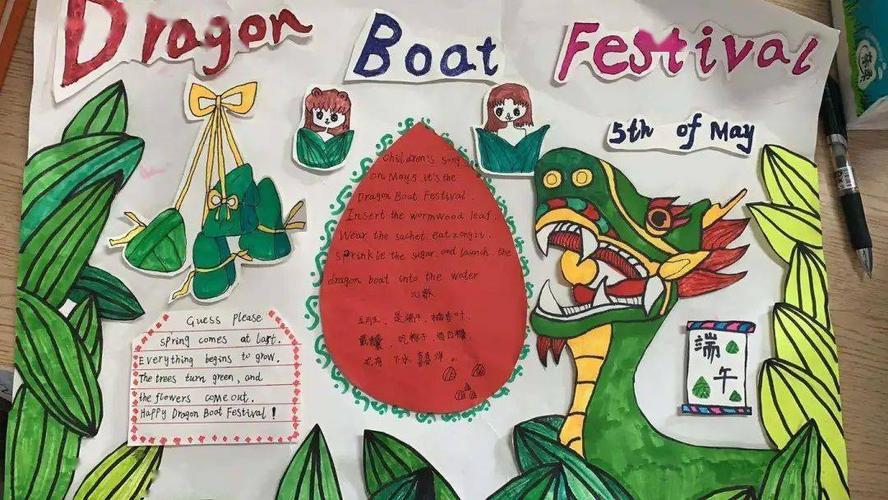 Dragon Boat Festival
5th of May
Children's song
on May 5 it's the
Dragon Boat Festival.
Insert the wormwood leaf.
Wear the sachet, eat zongzi,
sprinkle the sugar, and launch the
dragon boat into the water
儿歌
五月五,是端午,插香叶
戴香囊 吃粽子 洒白糖
龙舟 下水 喜喜洋。
Guess please
spring comes at last.
Everything begins to grow.
The trees turn green, and
the flowers come out.
Happy Dragon Boat Festival!
端
午